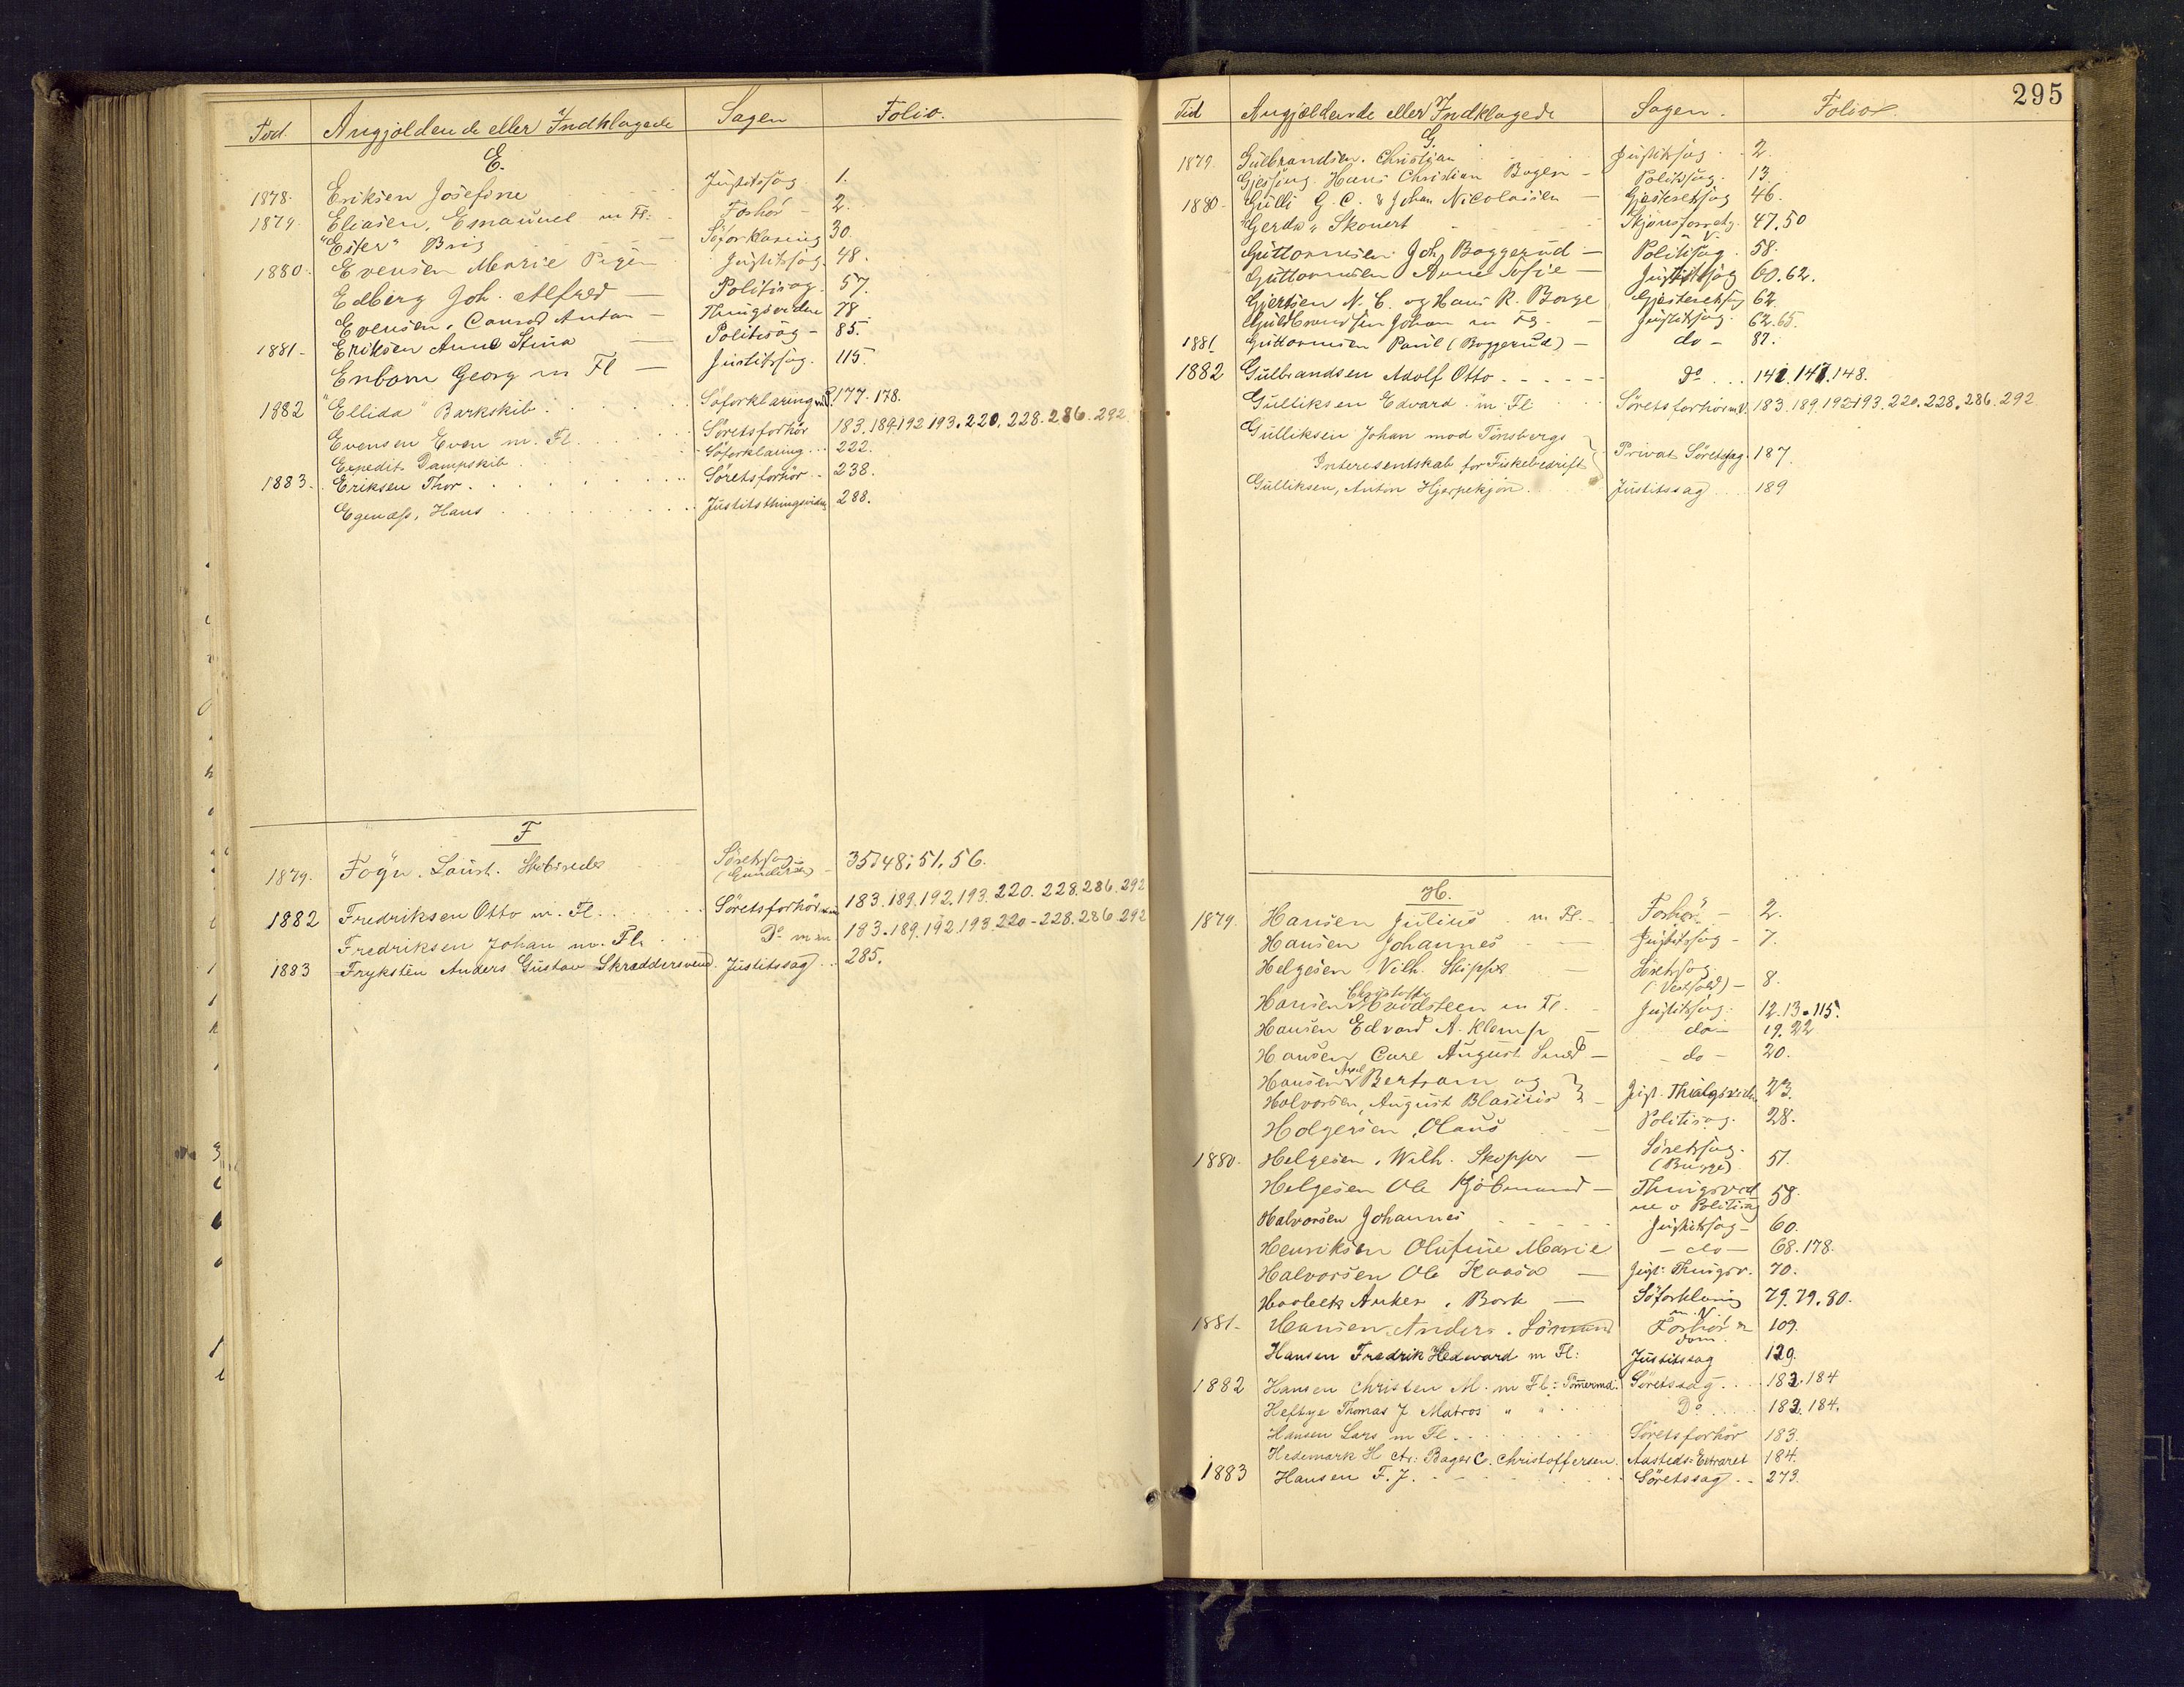 Tid. Angjeldende eller Indklagede Sagen Folio.
E.
1878. Eriksen Josefine Justitssag 1.
1879. Eliasen, Emanuel m Fl: Forhör 2.
"Ester" Brig Söforklaring 30.
1880. Evensen Marie Pigen Justitssag. 48.
Edberg Joh. Alfred Politisag. 57.
Evensen, Conrad Anton Thingsvidne 78.
1881 Eriksen Anne Stina Politisag 85.
Enbom Georg m Fl Justitssag. 115.
1882 "Ellida" Barkskib Söforklaring 177. 178.
Evensen Even m. Fl. Söretsforhör 183. 189. 192 193. 220. 228. 286. 292
Expedit Dampskib Söforklaring 222.
1883. Eriksen Thor Söretsforhör 238.
Egenæss, Hans Justitsthingsvidne 288.
F
1879. Fögn. Laurt. Skibsreder Söretssag (Gundersen) 35. 48; 51. 56.
1882 Fredriksen Otto m. Fl. Söretsforhör 183. 189. 192. 193. 220. 228. 286. 292
Fredriksen Johan m. Fl. Do 183. 189. 192. 193. 220 - 228. 286. 292
1883 Fryksten Anders Gustav Skræddersvend. Justitssag 285.
295
Tid Angjeldende eller Indklagede Sagen. Folio
G.
1879. Gulbrandsen. Christian Justitssag 2.
Gjessing Hans Christian Bogen Politisag. 13.
1880 Gulli G. C. & Johan Nicolaisen Gjesteretssag 46.
"Gerda" Skonert 47. 50
Guttormsen Joh. Boggerud Politisag. 58.
Guttormsen Anne Sofie Justitssag 60. 62.
Gjertsen N. C. og Hans R. Borge Gjesteretssag 62.
Guldbrandsen Johan m Fl. Justitssag. 62. 65.
1881 Guttormsen Paul (Boggerud) do 87.
1882 Gulbrandsen Adolf Otto Do 141. 147. 148.
Gulliksen Edvard m Fl Söretsforhör m.V. 183. 189. 192 193. 220. 228. 286. 292
Gulliksen Johan mod Tönsbergs
Interesentskab for Fiskebedrift Privat Söretssag 187
Gulliksen, Anton Hjerpekjön Justitssag 189
H.
1879. Hansen Julius m Fl. Forhör 2.
Hansen Johannes Justitssag 7.
Helgesen Vilh. Skipper Söretssag (Vestfold) 8.
Christoffer
Hansen Hvodsteen m Fl. Justitssag 12. 13. 115.
Hansen Edvard A. Klemp do 19. 22
Hansen Carl August Smed do 20.
Axel
Hansen Bertram og
Halvorsen, August Blasius Just. Thingsvidne 23.
Holgersen, Olaus Politisag. 28.
1880. Helgesen, Wilh. Skipper Söretssag. (Bugge) 51.
Helgesen Ole Kjöbmand Thingsvid ne o Politisag 58.
Halvorsen Johannes Justitssag 60.
Henriksen Olufine Marie do 68. 178.
Halvorsen Ole Kaasa Just. Thingsv. 70.
Hoobeck Anker, Bark Söforklaring m.V. 79. 79. 80.
1881 Hansen Anders. Sömand Forhör & dom. 109.
Hansen Fredrik Hedevard m Fl: Justitssag 129.
1882 Hansen Christen M. m Fl: Tömermd. Söretssag 183. 184
Heftye Thomas J Matros " " Do 183. 184.
Hansen Lars m Fl Söretsforhör 183.
Hedemark H ctr: Bager C. Christoffersen. Aasteds-Extraret 184.
1883 Hansen F. J. Söretssag 273.